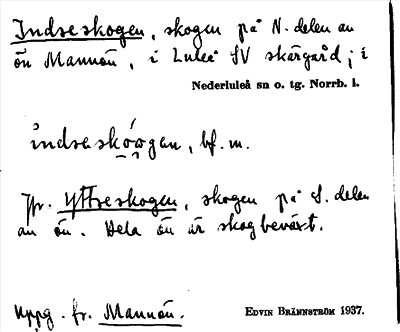 Indreskogen, skogen på N. delen av
ön Mannön, i Luleå SV skärgård; i
Nederluleå sn o. tg. Norrb. l.
indreskógen, bf. m.
Jfr. Yttreskogen, skogen på S. delen
av ön. Hela ön är skogbeväxt.
Uppg. fr. Mannön.
EDVIN BRÄNNSTRÖM 1937.